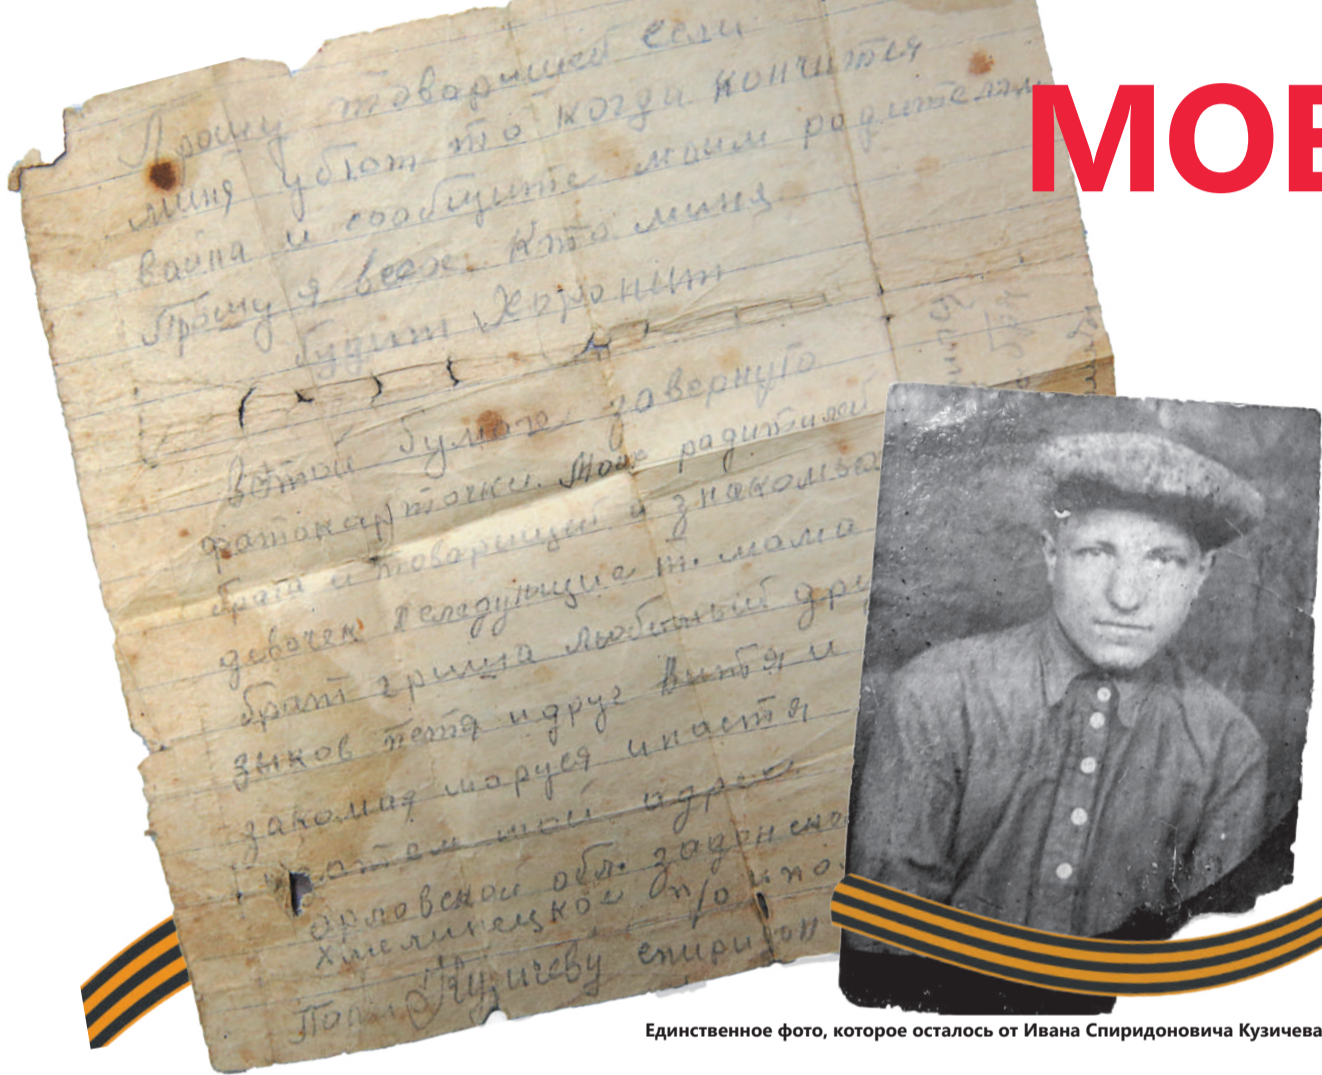 Прошу товарищей если
миня убют то когда кончится
вайна и сообщите моим родителям
Прошу я всех кто миня
будит Хоронит
Вэтой бумаге завернуто
фатокарточки. Моих радителей
брата и товарищей и знакомых
девочек следующие т. мама
брат гриша любимый
зыков петя и друг Витя и
закомая маруся и настя
затем мой адрес
арловской обл. заденско
Хмелинецкой п/о
Кузичеву спиридон
МО
Единственное фото, которое осталось от Ивана Спиридоновича Кузичева